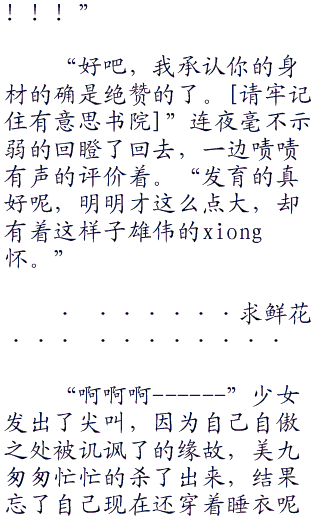 ！！！”
“好吧，我承认你的身
材的确是绝赞的了。[请牢记
住有意思书院]”连夜毫不示
弱的回瞪了回去，一边啧啧
有声的评价着。“发育的真
好呢，明明才这么点大，却
有着这样子雄伟的xiong
怀。”
· ······求鲜花
··· ···········
“啊啊啊------”少女
发出了尖叫，因为自己自傲
之处被讥讽了的缘故，美九
匆匆忙忙的杀了出来，结果
忘了自己现在还穿着睡衣呢